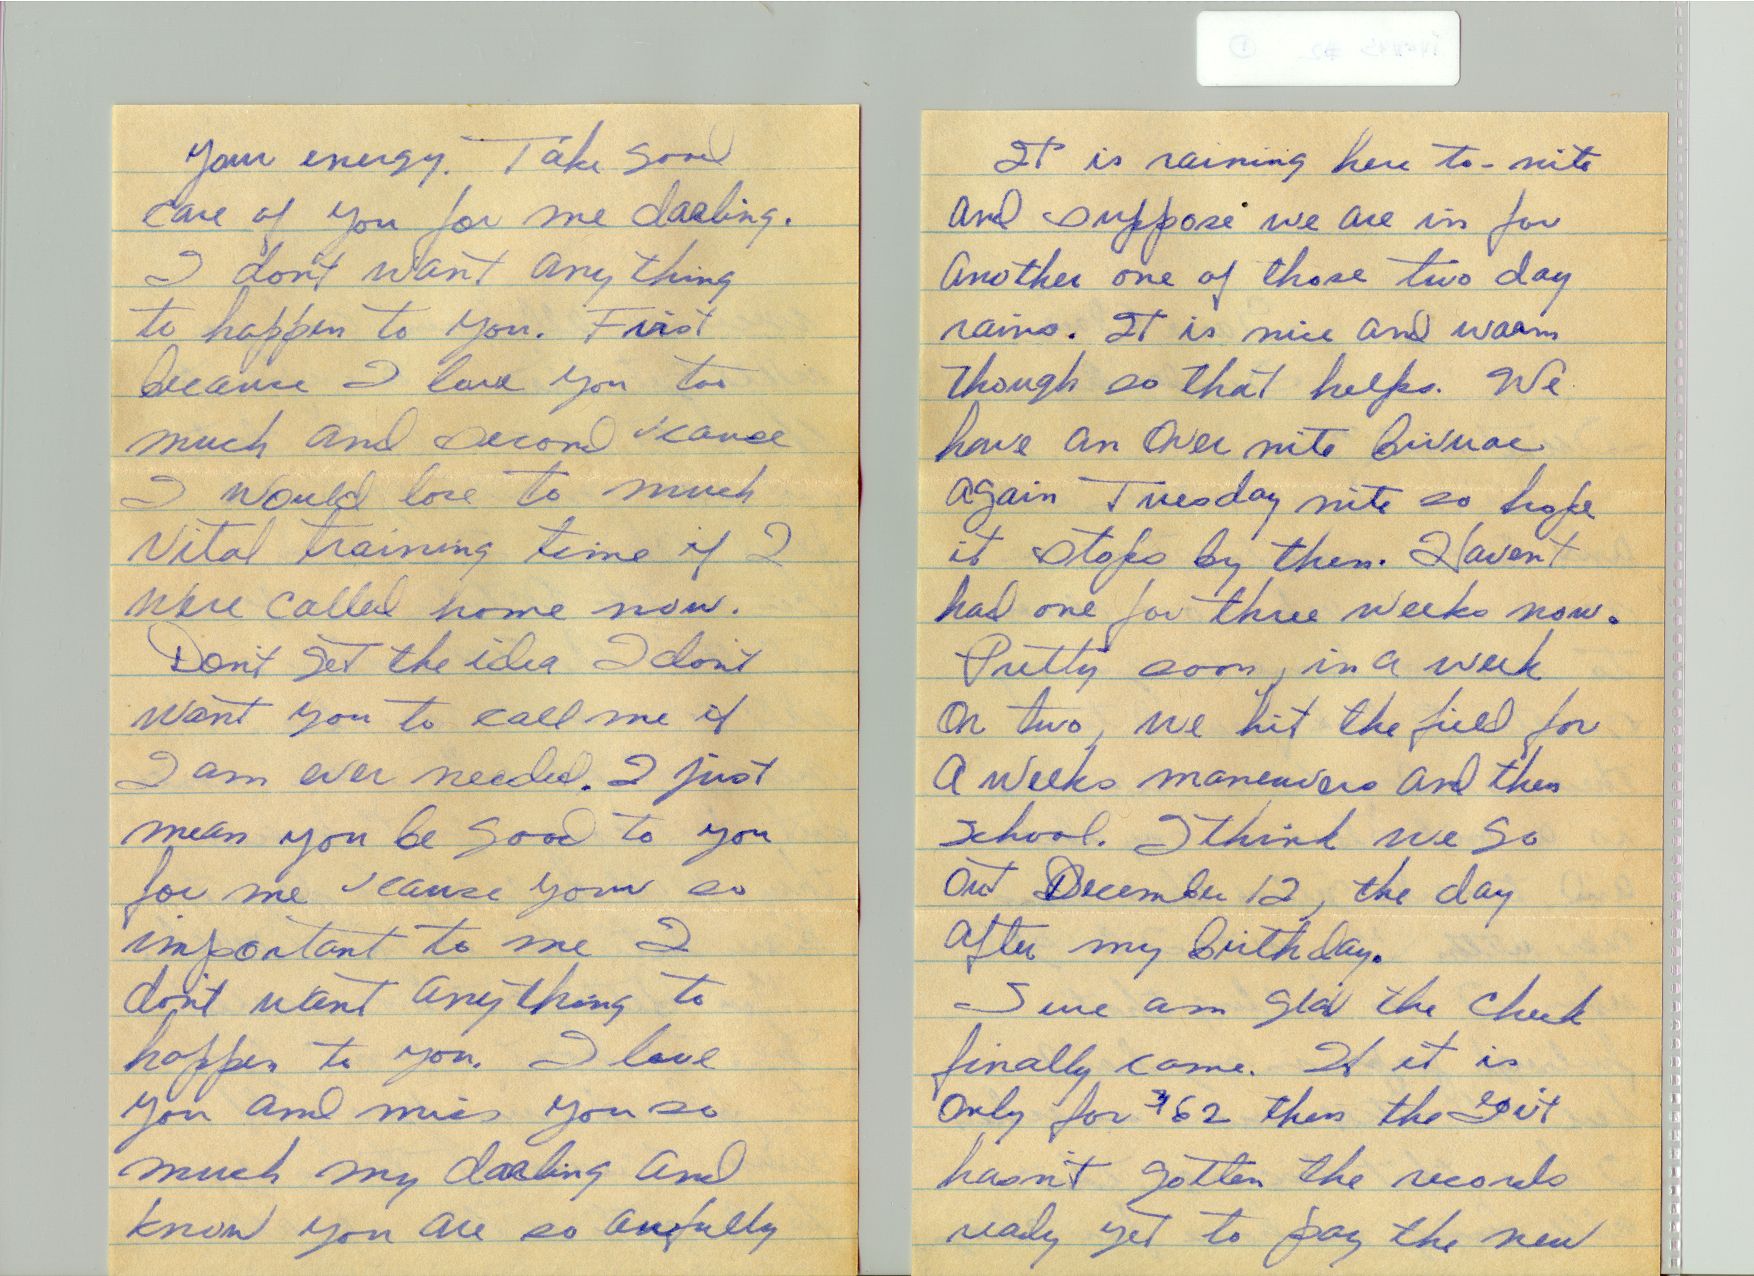 your energy. Take good
care of you for me daaling.
I don't want anything
to happen to you. First
because I love you too
much and second 'cause
I would lose to much
vital training time if I
were called home now.
Don't get the idea I don't
want you to call me if
I am ever needed. I just
mean you be good to you
for me 'cause your so
important to me I
don't want anything to
happen to you. I love
you and miss you so
much my daaling and
know you are so awfully
It is raining here to-nite
and suppose we are in for
another one of those two day
rains. It is nice and warm
though so that helps. We
have an over nite bivuac
again Tuesday nite so hope
it stops by then. Havent
had one for three weeks now.
Pretty soon, in a week
or two, we hit the field for
a weeks maneuvers and then
school. I think we go
out December 12, the day
after my birthday.
Sure am glad the check
finally came. If it is
only for $62 then the gov't
hasn't gotten the records
ready yet to pay the new